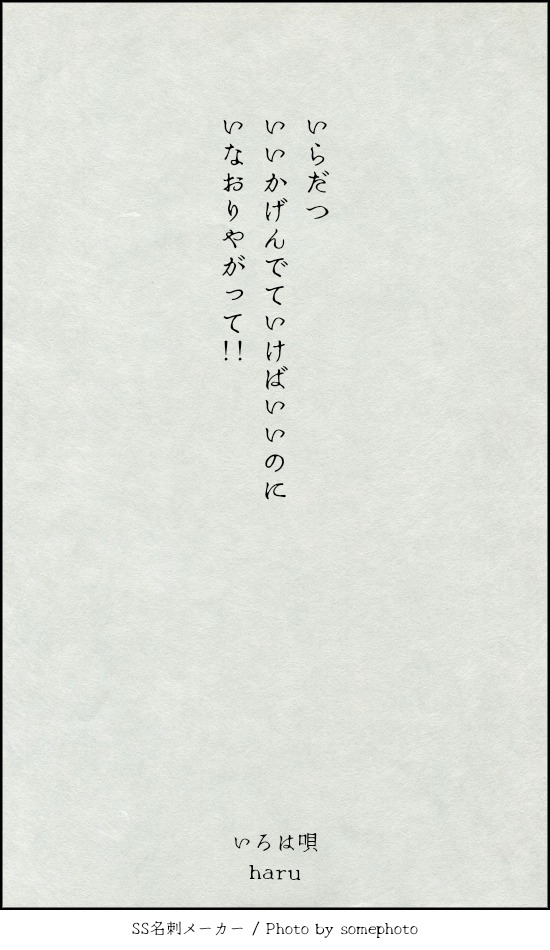 いらだつ
いいかげんでていけばいいのに
いなおりやがって!!
いろは唄
haru
SS名刺メーカー / Photo by somephoto